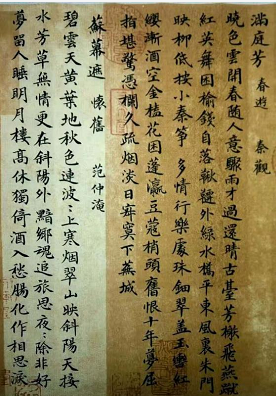 滿庭芳 春遊 秦觀
曉色雲開春隨人意驟雨才過還晴古臺芳榭飛燕蹴
紅英舞困榆錢自落鞦韆外綠水橋平東風裏朱門
映柳低按小秦箏 多情行樂處珠鈿翠蓋玉轡紅
纓漸酒空金榼花困蓬瀛豆蔻梢頭舊恨十年夢屈
指堪驚憑欄久疏烟淡日寂寞下蕪城
蘇幕遮 懷舊 范仲淹
碧雲天黃葉地秋色連波〻上寒烟翠山映斜陽天接
水芳草無情更在斜陽外 黯鄉魂追旅思夜〻除非好
夢留人睡明月樓高休獨倚酒入愁腸化作相思淚